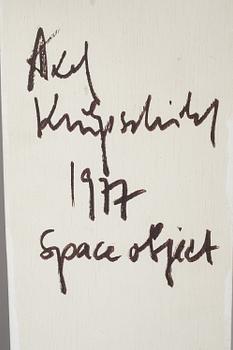 Axel
Knipschild
1977
Space object